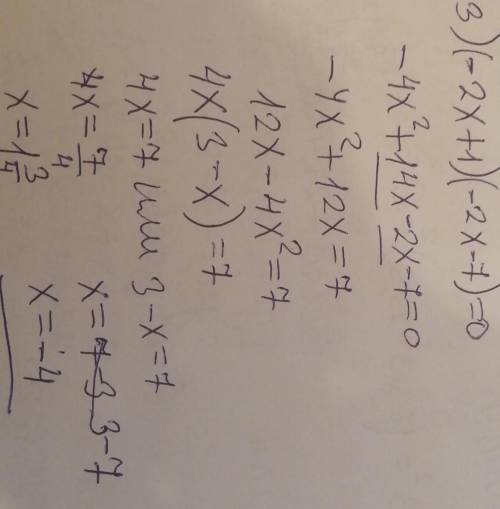 3) (-2x+1)(-2x-7)=0
-4x²+14x-2x-7=0
-4x²+12x=7
12x-4x²=7
4x(3-x)=7
4x=7 или 3-x=7
4x=7/4 x=7-3 3-7
x=1 3/4 x=-4